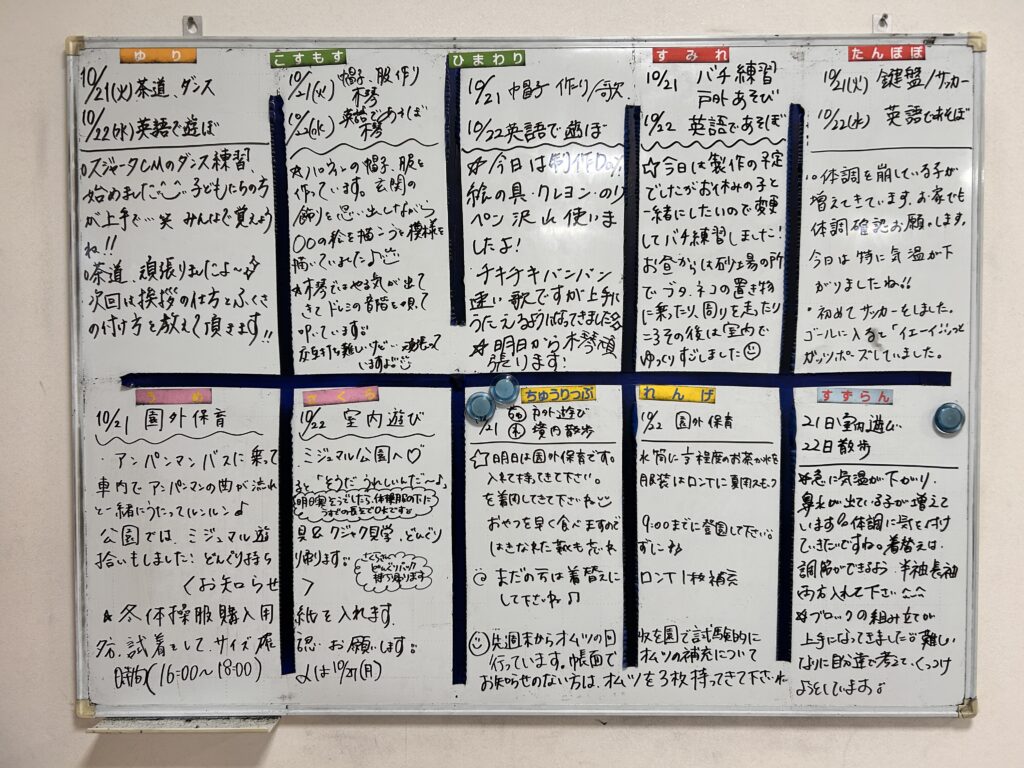 ゆり
10/21(火)茶道、ダンス
10/22(水)英語で遊ぼ
○スジャータCMのダンス練習
始めました 子どもたちの方
が上手で…笑 みんなで覚えよう
ね!!
○茶道、頑張りました〜
次回は挨拶の仕方とふくさ
の付け方を教えて頂きます!!
こすもす
10/21(火) 帽子、服作り
木琴
10/22(水) 英語であそぼ
木琴
の帽子、服を
作っています。玄関の
飾りを思い出しながら
○○の絵を描こうと模様を
描いていました♪
木琴ではやる気が出て
きてドレミの音階を唄って
叩いています。
ひまわり
10/21 帽子作り/歌
10/22英語で遊ぼ
☆今日は制作Day!
絵の具・クレヨン・のり
ペン沢山使いま
したよ!
チキチキバンバン
速い歌ですが上手に
うたえるようになってきました
☆明日から木琴頑
張ります!
すみれ
10/21 バチ練習
戸外あそび
10/22 英語であそぼ
☆今日は製作の予定
でしたがお休みの子と
一緒にしたいので変更
してバチ練習しました!
お昼からは砂場の所
でブタ、ネコの置き物
に乗ったり、周りを走ったり
その後は室内で
ゆっくりすごしました
たんぽぽ
10/21(火) 鍵盤/サッカー
10/22(水) 英語であそぼ
○体調を崩している子が
増えてきています。お家でも
体調確認お願いします。
今日は特に気温が下
がりましたね
・初めてサッカーをしました。
ゴールに入ると「イエーイ」っと
ガッツポーズしていました。
うめ
10/21 園外保育
アンパンマンバスに乗って
車内でアンパンマンの曲が流れ
と一緒にうたってルンルン♪
公園では、ミジュマル遊
拾いもしました! どんぐり持ち
〈お知らせ
★冬体操服購入用
試着をして、サイズ確
時間(16:00〜18:00)
さくら
10/22 室内遊び
ミジュマル公園へ♡
「そうだ うれしいんだ〜♪」
具&クジャク見学、どんぐり
り刺ります。
さくらさん
どんぐりパック
持ち帰ります
〉
紙を入れます。
認お願いします。
〆は10/27(月)
ちゅうりっぷ
戸外遊び
21 境内散歩
☆明日は園外保育です。
入れて持ってきて下さい。
を着用してきて下さい
おやつを早く食べますので
まだの方は着替えに
して下さいね♫
先週末からオムツの日
行っています。帳面で
お知らせのない方は、オムツを3枚持ってきて下さいね
れんげ
園外保育
水筒に 程度のお茶か水を
服装はロンTに夏用スモック
9:00までに登園して下さい。
ロンT1枚補充
を園で試験的に
オムツの補充について
すずらん
21日室内遊び
22日散歩
☆急に気温が下がり、
鼻水が出ている子が増えて
います 体調に気を付け
ていきたいですね。着替えは
調節ができるよう 半袖長袖
両方入れて下さい
☆ブロックの組み立てが
上手になってきました 難しい
なりに自分達で考えて、くっつけ
ようとしています♪